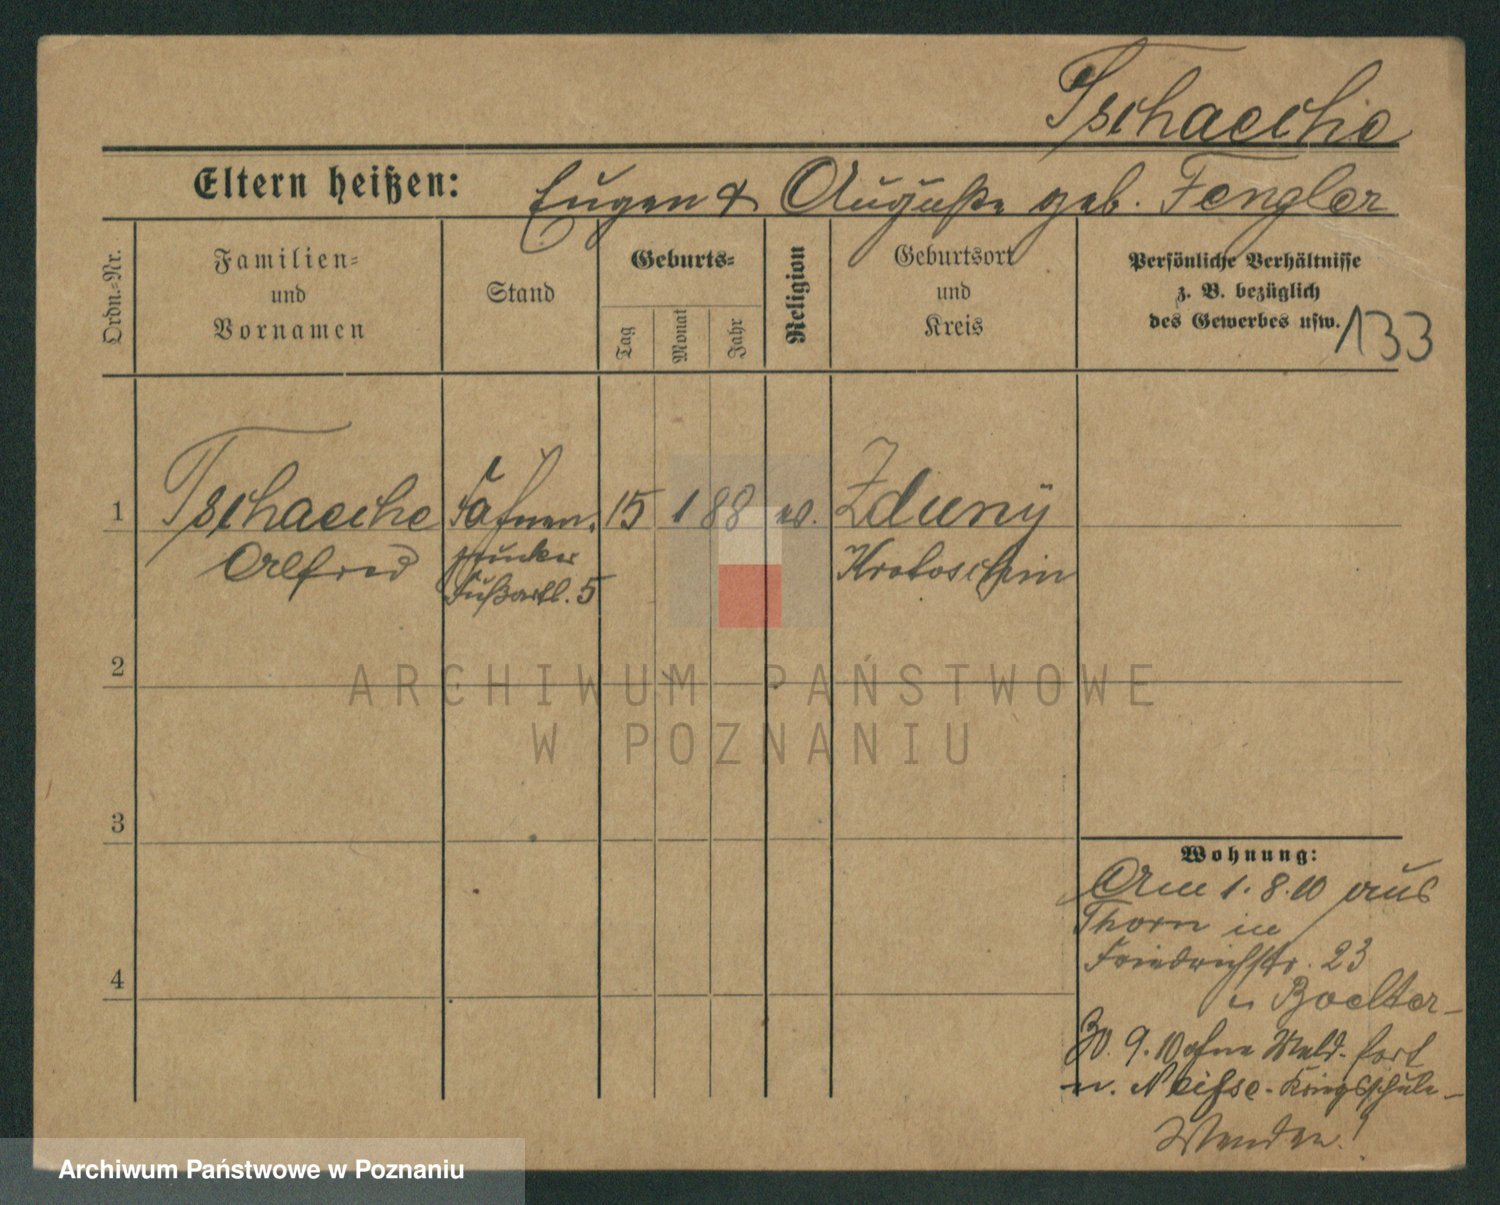 Tschacche
Eltern heißen: Eugen & Auguste geb. Fengler
Ordn.-Nr.
Familien-
und
Vornamen
Stand
Geburts-
Tag
Monat
Jahr
Religion
Geburtsort
und
Kreis
Persönliche Verhältnisse
z. B. bezüglich
des Gewerbes usw.
133
1 Tschacche Fähnen. 15 1 88 ev. Zduny
Alfred junker Krotoschin
Fußartl. 5
2
3
4
Wohnung:
Am 1. 8. 10 aus
Thorn in
Friedrichstr. 23
b. Boelter
30. 9. 10 ohne Meld. fort
n. Neisse - Kriegsschule -
Wenden!
ARCHIWUM PAŃSTWOWE
W POZNANIU
Archiwum Państwowe w Poznaniu